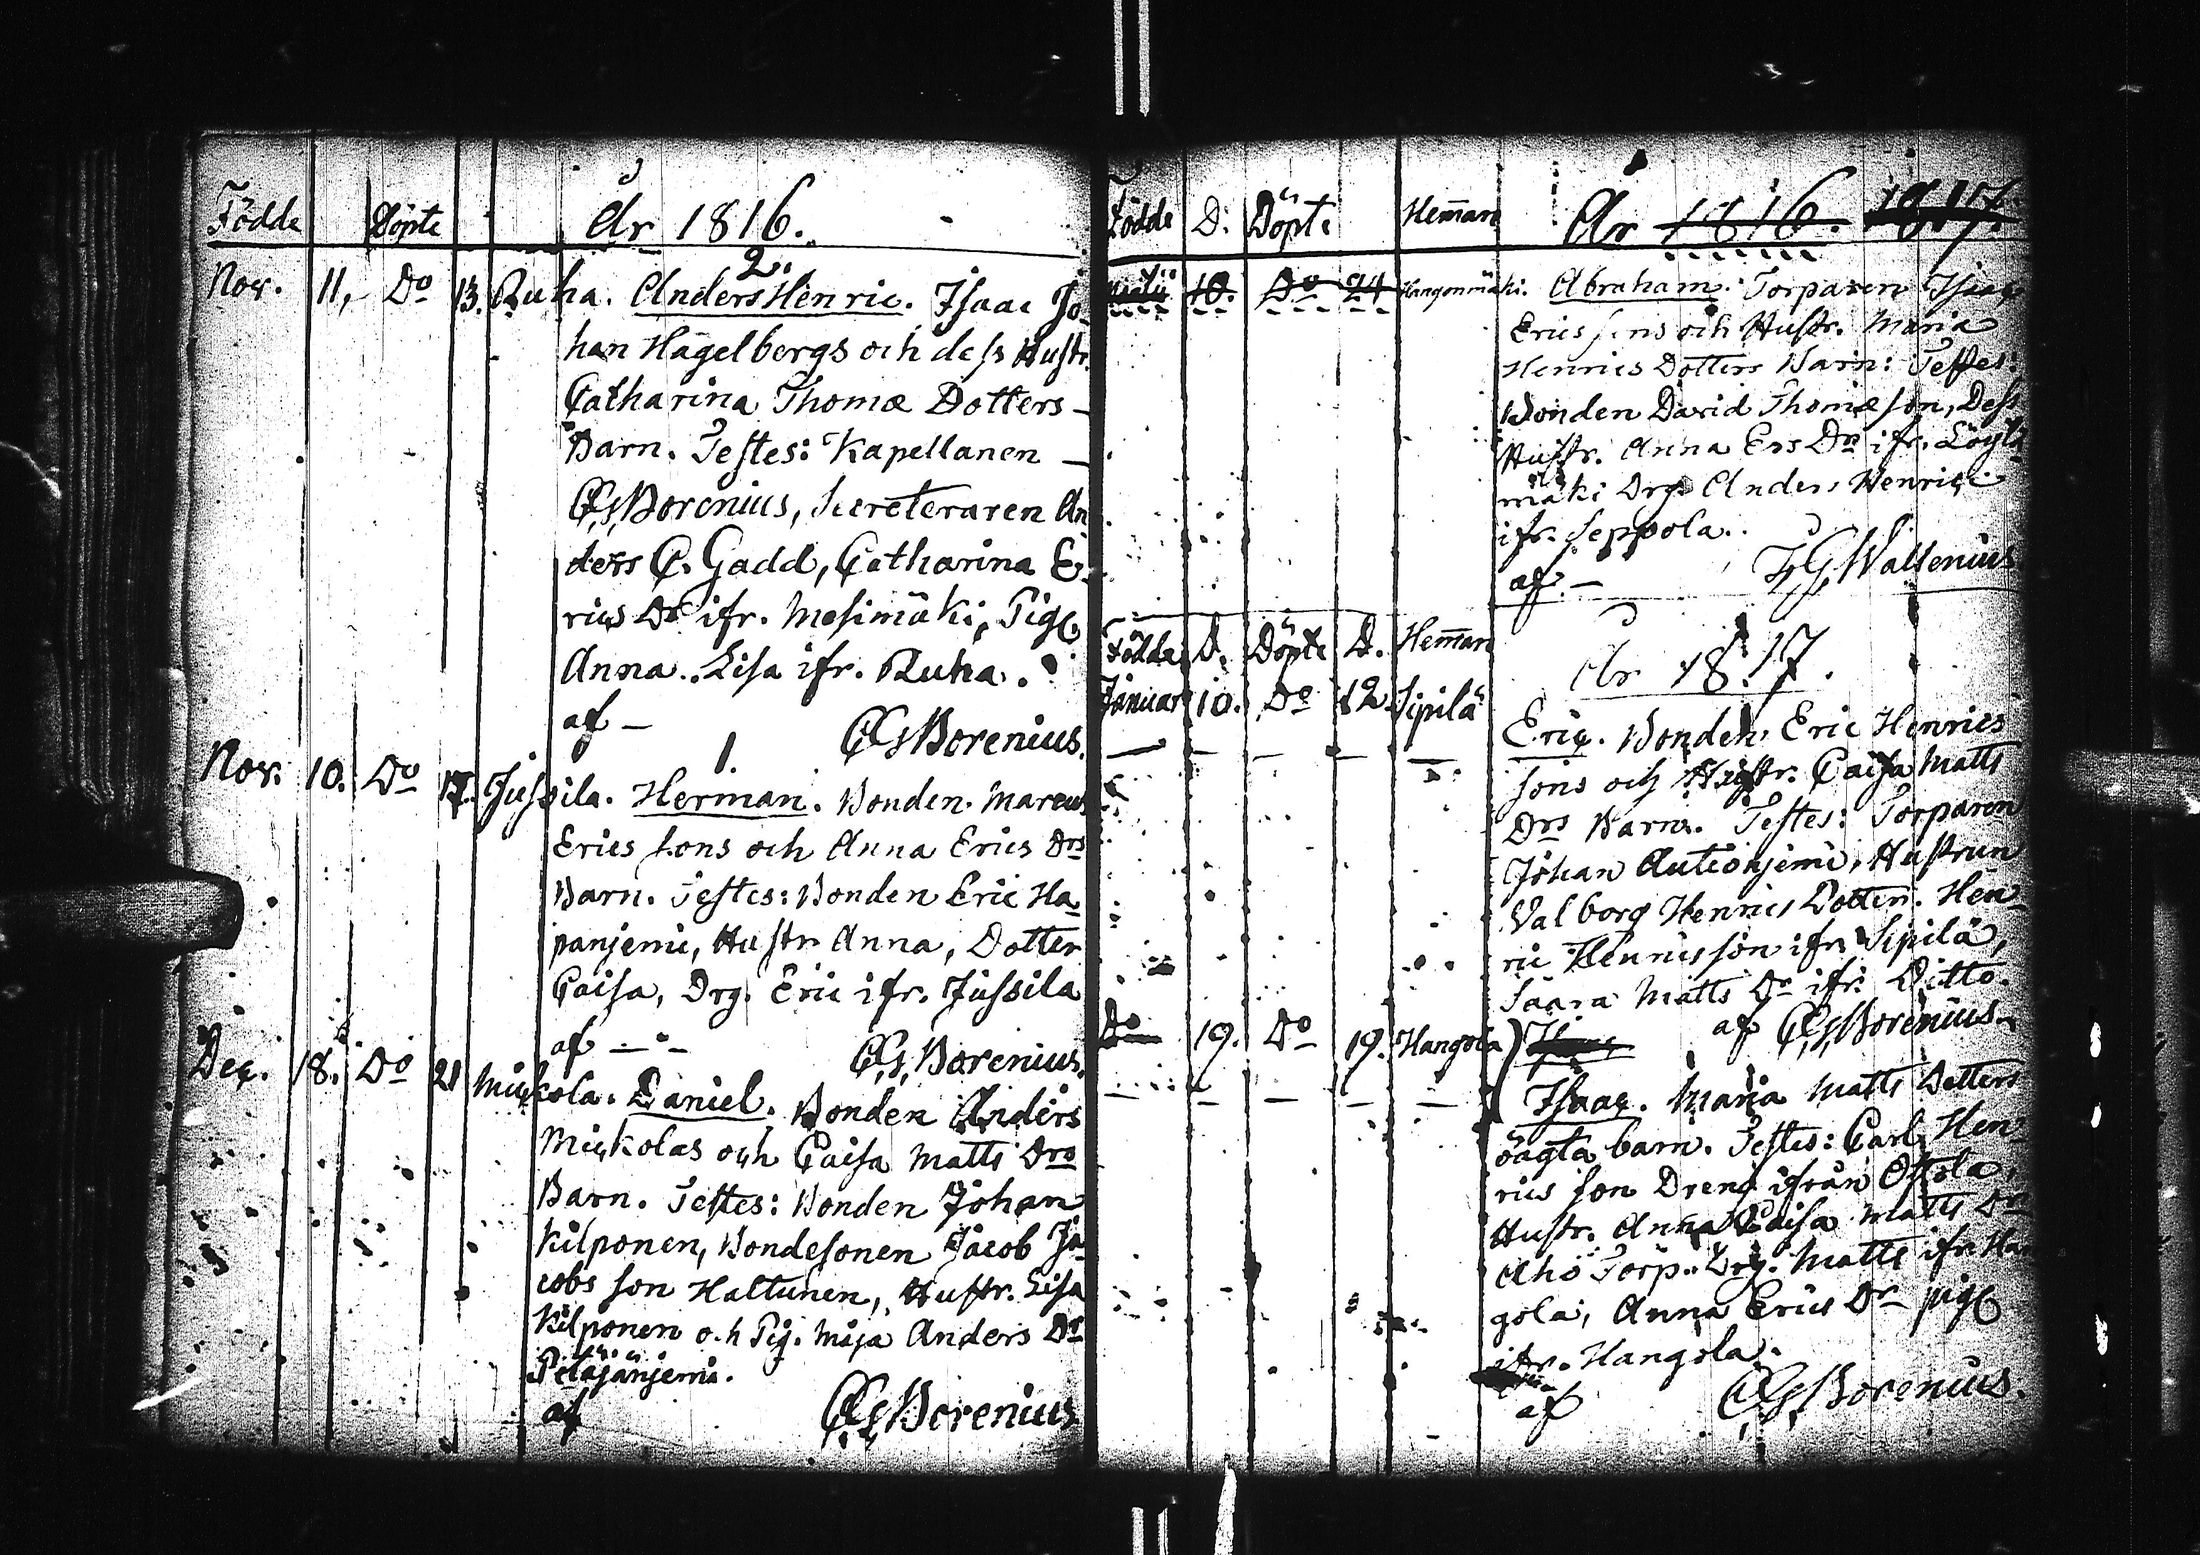 Födde Döpte År 1816.
2.
Nov. 11, Do 13. Ruha. Anders Henric. Isaac Jo-
han Hägelbergs och dess Hustr.
Catharina Thomæ Dotters -
Barn. Testes: Kapellanen -
CGBorenius, Secreteraren An
ders C. Gadd, Catharina E-
rics Dr ifr. Mesimäki, Pig.
Anna Lisa ifr. Ruha.
af - CGBorenius.
1.
Nov. 10. Do 17. Jussila. Herman. Bonden Marcus
Erics sons och Anna Erics Drs
Barn. Testes: Bonden Eric Ha-
panjemi, Hustr Anna, Dotter
Caisa, Drg. Eric ifr. Jussila
af - CGBorenius.
Dec. 18. Do 21 Mickola. Daniel. Bonden Anders
Mickolas och Caisa Matts Drs
Barn. Testes: Bonden Johan
Kilponen, Bondesonen Jacob Ja-
cobs son Haltunen, Hustr. Lisa
Kilponen och Pig. Maja Anders Dr
Petäjänjemi.
af CGBorenius
Födde D: Döpte Heman År 1816. 1817.
10. Do 24 Hangonmäki. Abraham. Torparen Isaac
Erics sons och Hustr. Maria
Henrics Dotters Barn: Testes:
Bonden David Thomæ son, Dess
Hustr. Anna Ers Dr ifr. Löyti
mäki Drg. Anders Henric
ifr. Seppola.
af. - Wallenius
Födde D. Döpte D. Heman År 1817.
Januar 10. Do 12. Sipilä Eric. Bonden Eric Henrics
sons och Hustr. Caisa Matts
Drs Barn. Testes: Torparen
Johan Autionjemi, Hustrun
Valborg Henrics Dotter. Hen-
ric Henricsson ifr. Sipilä,
Saara Matts Dr ifr. Ditto.
af CGBorenius
Do 19. Do 19. Hangola
Isaac. Maria Matts Dotters
oägta barn. Testes: Carl Hen-
rics son Dreng ifrån Ostola,
Hustr. Anna Caisa Matts Dr
Aho Torp. Drg. Matts ifr. Han
gola, Anna Erics Dr pig.
ifr. Hangola.
af CGBorenius.